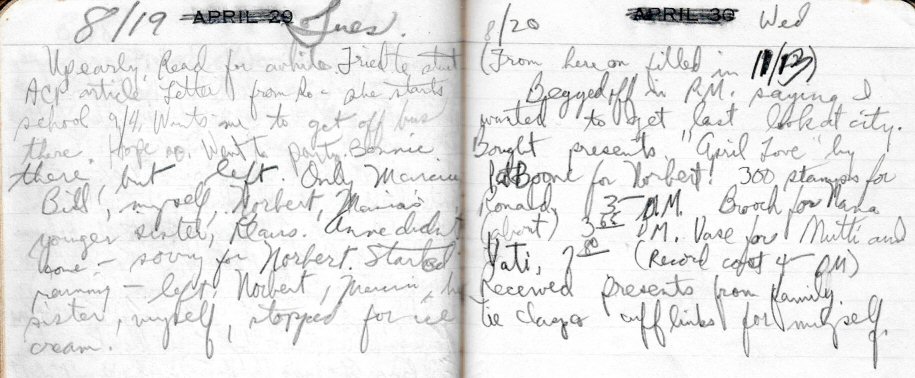 8/19 APRIL 29 Tues.
Up early. Read for awhile. Tried to start
ACP article. Letter from Ro - she starts
school 9/4. Wants me to get off bus
there. Hope so. Went to party. Bonnie
there, but left. Only Marcia
Bill, myself, Norbert, Marcia's
younger sister, Klaus. Anne didn't
come - sorry for Norbert. Started
raining - left. Norbert, Marcia, her
sister, myself, stopped for ice
cream.
8/20 APRIL 30 Wed
(From here on filled in 11/13)
Begged off in P.M. saying I
wanted to get last look at city.
Bought presents. "April Love" by
Pat Boone for Norbert. 300 stamps for
Ronald, 3- D.M. Brooch for Nana
(about) 3 D.M. Vase for Mutti and
Vati, (Record cost 4- DM)
Received presents from family.
tie clasp cuff links for myself.